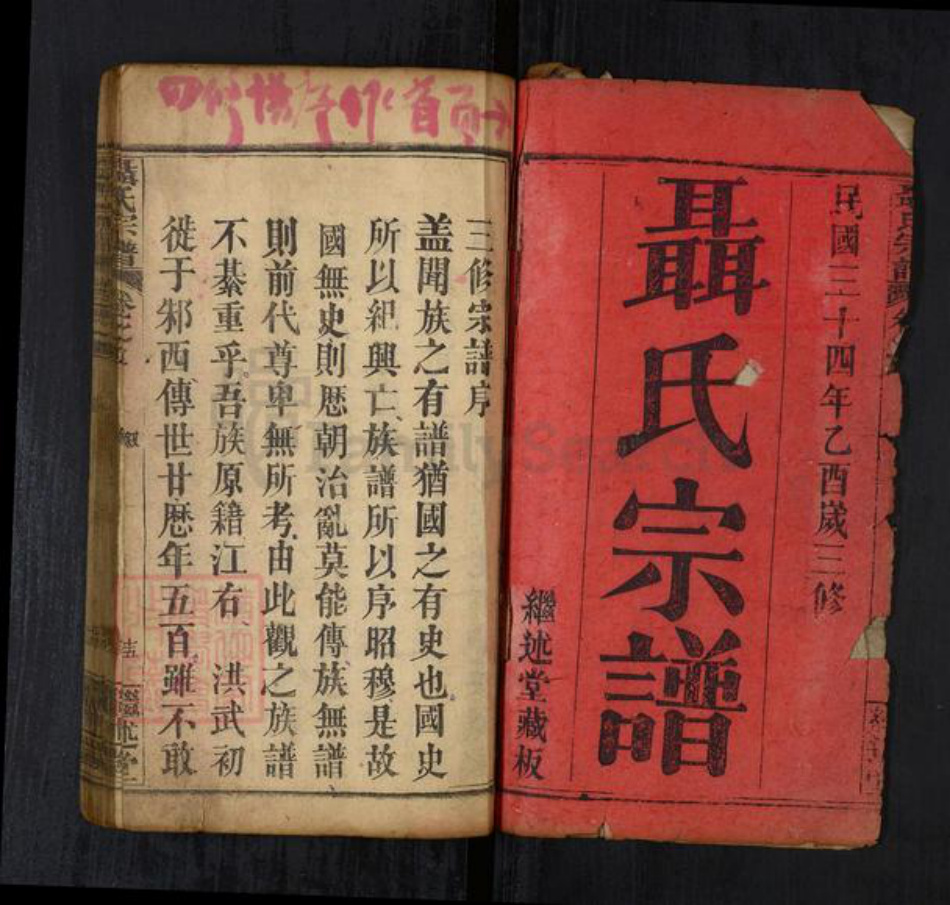 民國三十四年乙酉嵗三修
聶氏宗譜
繼述堂藏板
三修宗譜序
盖聞族之有譜猶國之有史也國史
所以紀興亡族譜所以序昭穆是故
國無史則歴朝治亂莫能傳族無譜
則前代尊卑無所考由此觀之族譜
不綦重乎吾族原籍江右洪武初
徙于邾西傳世廿歴年五百雖不敢
聶氏宗譜
述堂
FamilySearch